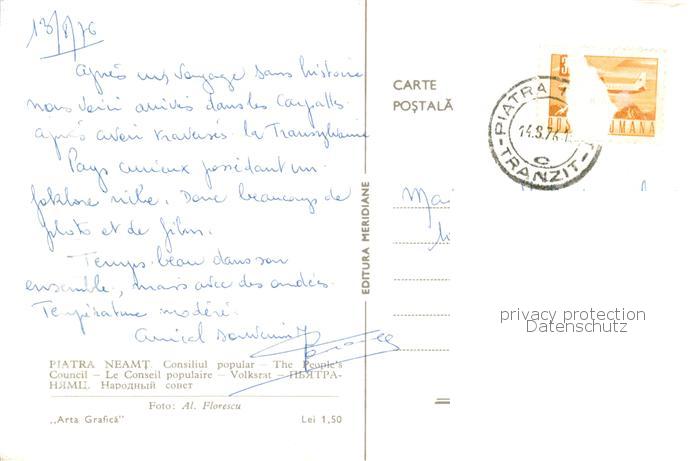 13/8/76
après un voyage sans histoire
nous voici arrivés dans les Carpattes
après avoir traversés la Transylvanie
Pays curieux possédant un
foklore riche. Donc beaucoup de
photo et de film.
Temps beau dans son
ensemble, mais avec des ondés.
Température modéré.
amical souvenir
PIATRA NEAMȚ. Consiliul popular — The People's
Council — Le Conseil populaire — Volksrat — ПЬЯТРА-
НЯМЦ. Народный совет
Foto: Al. Florescu
„Arta Grafică" Lei 1,50
EDITURA MERIDIANE
CARTE
POȘTALĂ
PIATRA
14.8.76
C
TRANZIT
MANA
privacy protection
Datenschutz